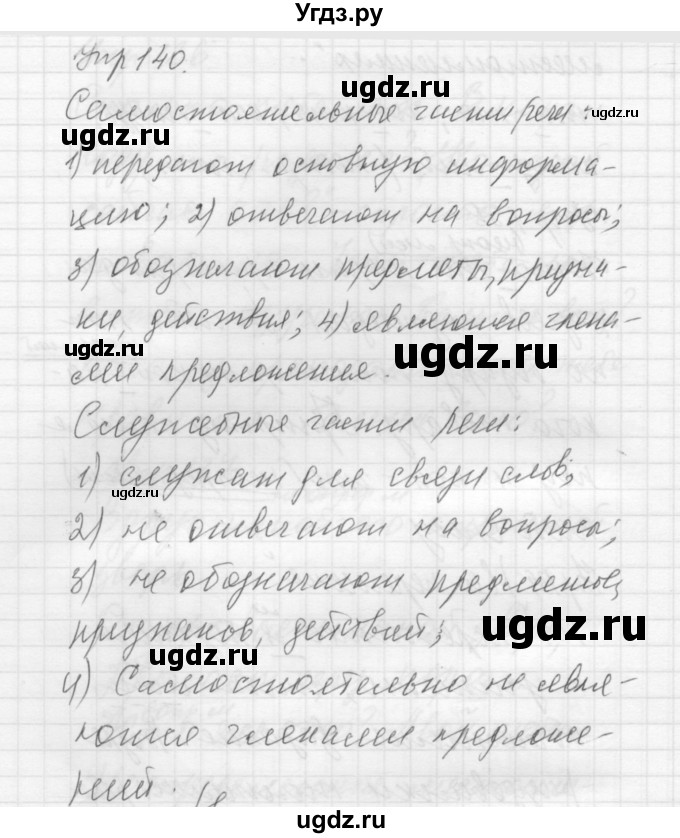 Угдз.ру
Упр 140.
ugdz.ru
Самостоятельные части речи:
ugdz.ru
ugdz.ru
1) передают основную информа-
цию; 2) отвечают на вопросы;
3) обозначают предметы, призна-
ки, действия; 4) являются члена-
ugdz.ru
ugdz.ru
ми предложения.
Служебные части речи:
1) служат для связи слов;
ugdz.ru
2) не отвечают на вопросы;
3) не обозначают предметов,
ugdz.ru
признаков, действий;
ugdz.ru
4) Самостоятельно не явля-
ются членами предложе-
ний.
ugdz.ru